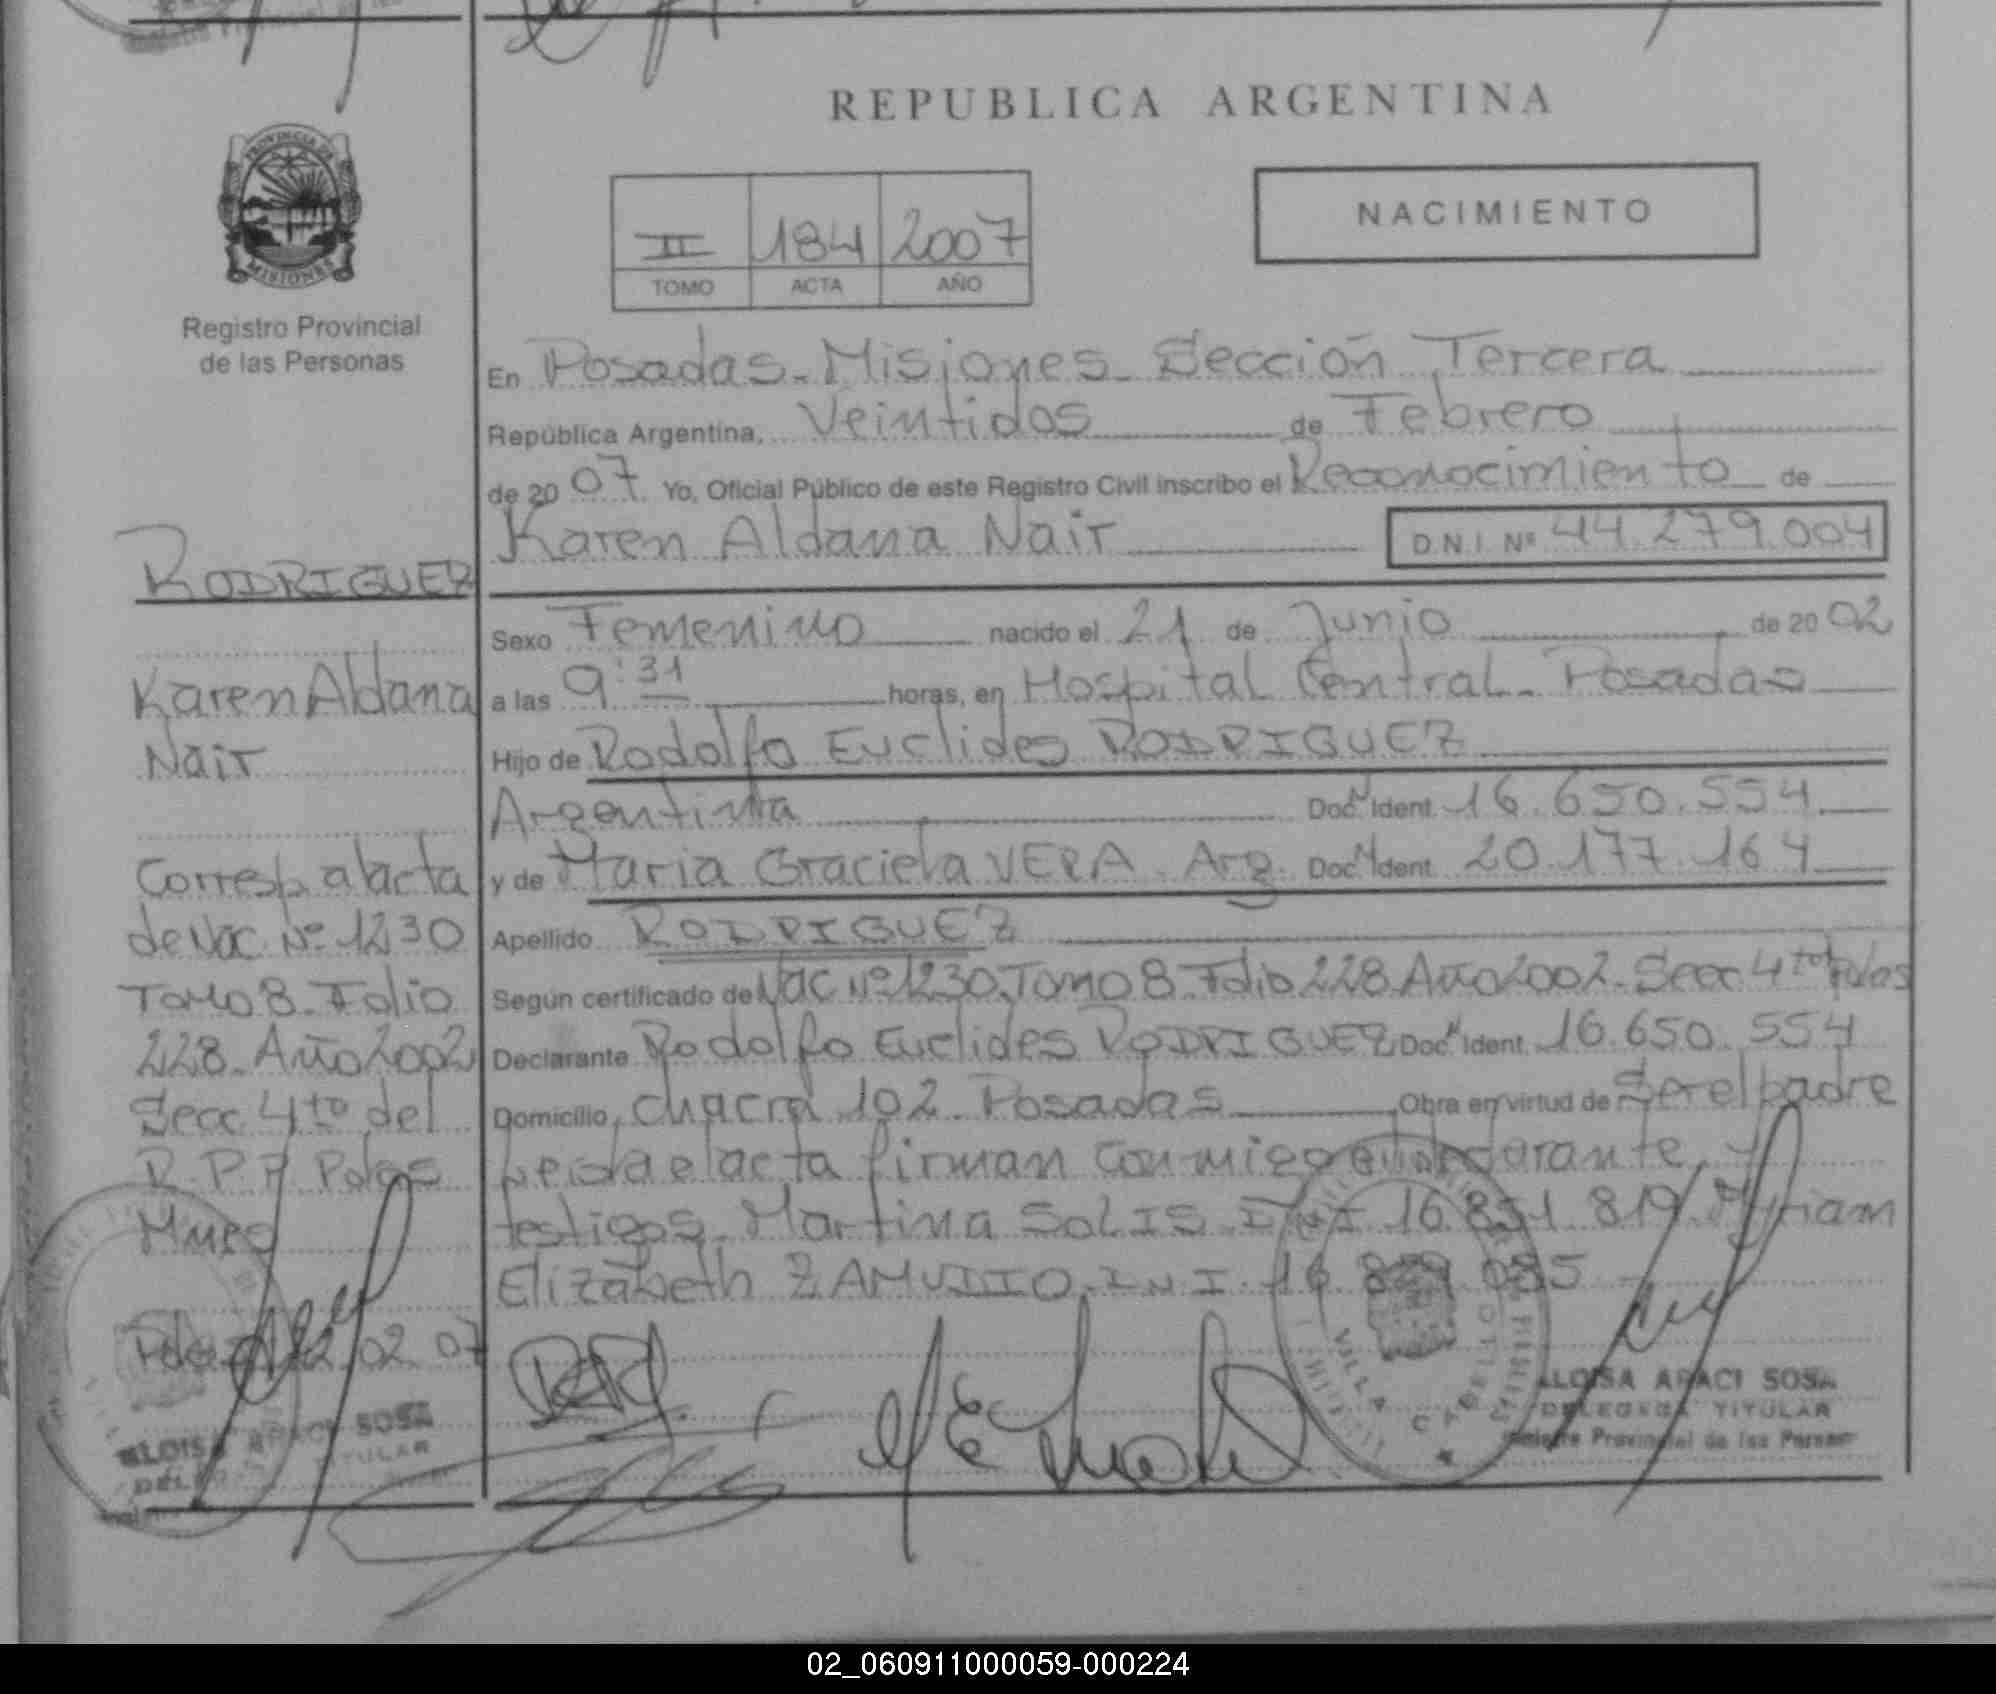 REPUBLICA ARGENTINA
PROVINCIA DE
MISIONES
Registro Provincial
de las Personas
II 184 2007
TOMO ACTA AÑO
NACIMIENTO
En Posadas-Misiones-Sección Tercera
República Argentina, Veintidos de Febrero
de 2007. Yo, Oficial Público de este Registro Civil inscribo el Reconocimiento de
Karen Aldana Nair D.N.I. Nº 44.279.004
Sexo Femenino nacido el 21 de Junio de 2002
a las 9:31 horas, en Hospital Central-Posadas
Hijo de Rodolfo Euclides RODRIGUEZ
Argentina Doc. Ident. 16.650.554
y de Maria Graciela VERA. Arg. Doc. Ident. 20.177.164
Apellido RODRIGUEZ
Según certificado de Nac Nº 1230. Tomo 8. Folio 228. Año 2002. Secc. 4to Pdas
Declarante Rodolfo Euclides RODRIGUEZ Doc. Ident. 16.650.554
Domicilio, chacra 102-Posadas Obra en virtud de Ser el padre
leida el acta firman conmigo el declarante y
testigos. Martina SOLIS DNI 16.851.819. Myriam
Elizabeth ZAMUDIO. DNI. 16.829.085
RODRIGUEZ
Karen Aldana
Nair
Corresp. al acta
de Nac. Nº 1230
Tomo 8. Folio
228. Año 2002
Secc. 4to del
R.P.P. Pdas
Mnes
Pdas 22.02.07
ALOISA ARACI SOSA
TITULAR
ALOISA ARACI SOSA
DELEGADA TITULAR
Registro Provincial de las Personas
VILLA CABELLO
02_060911000059-000224